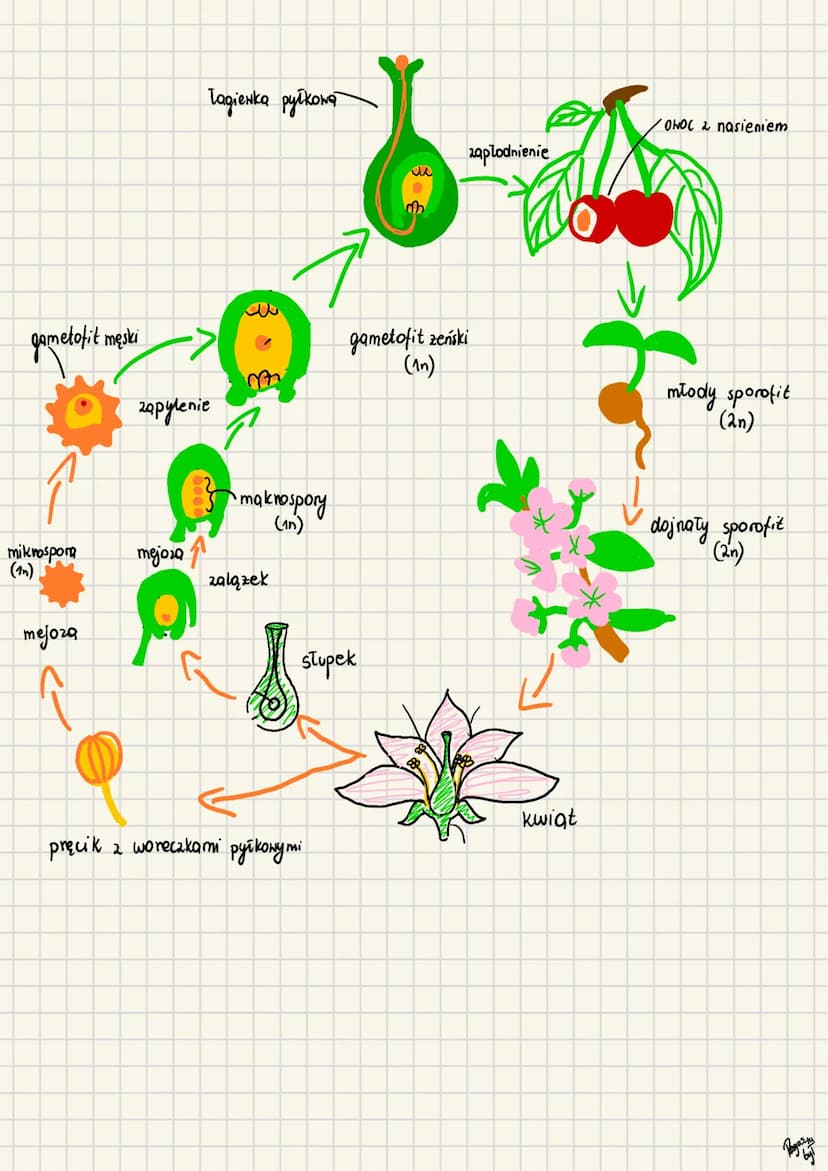 łagienka pyłkowa
zapłodnienie
owoc z nasieniem
gametofit męski
gametofit żeński
(1n)
zapylenie
młody sporofit
(2n)
makrospory
(1n)
mikrospora
(1n)
mejoza
zalążek
dojrzały sporofit
(2n)
mejoza
słupek
kwiat
pręcik z woreczkami pyłkowymi